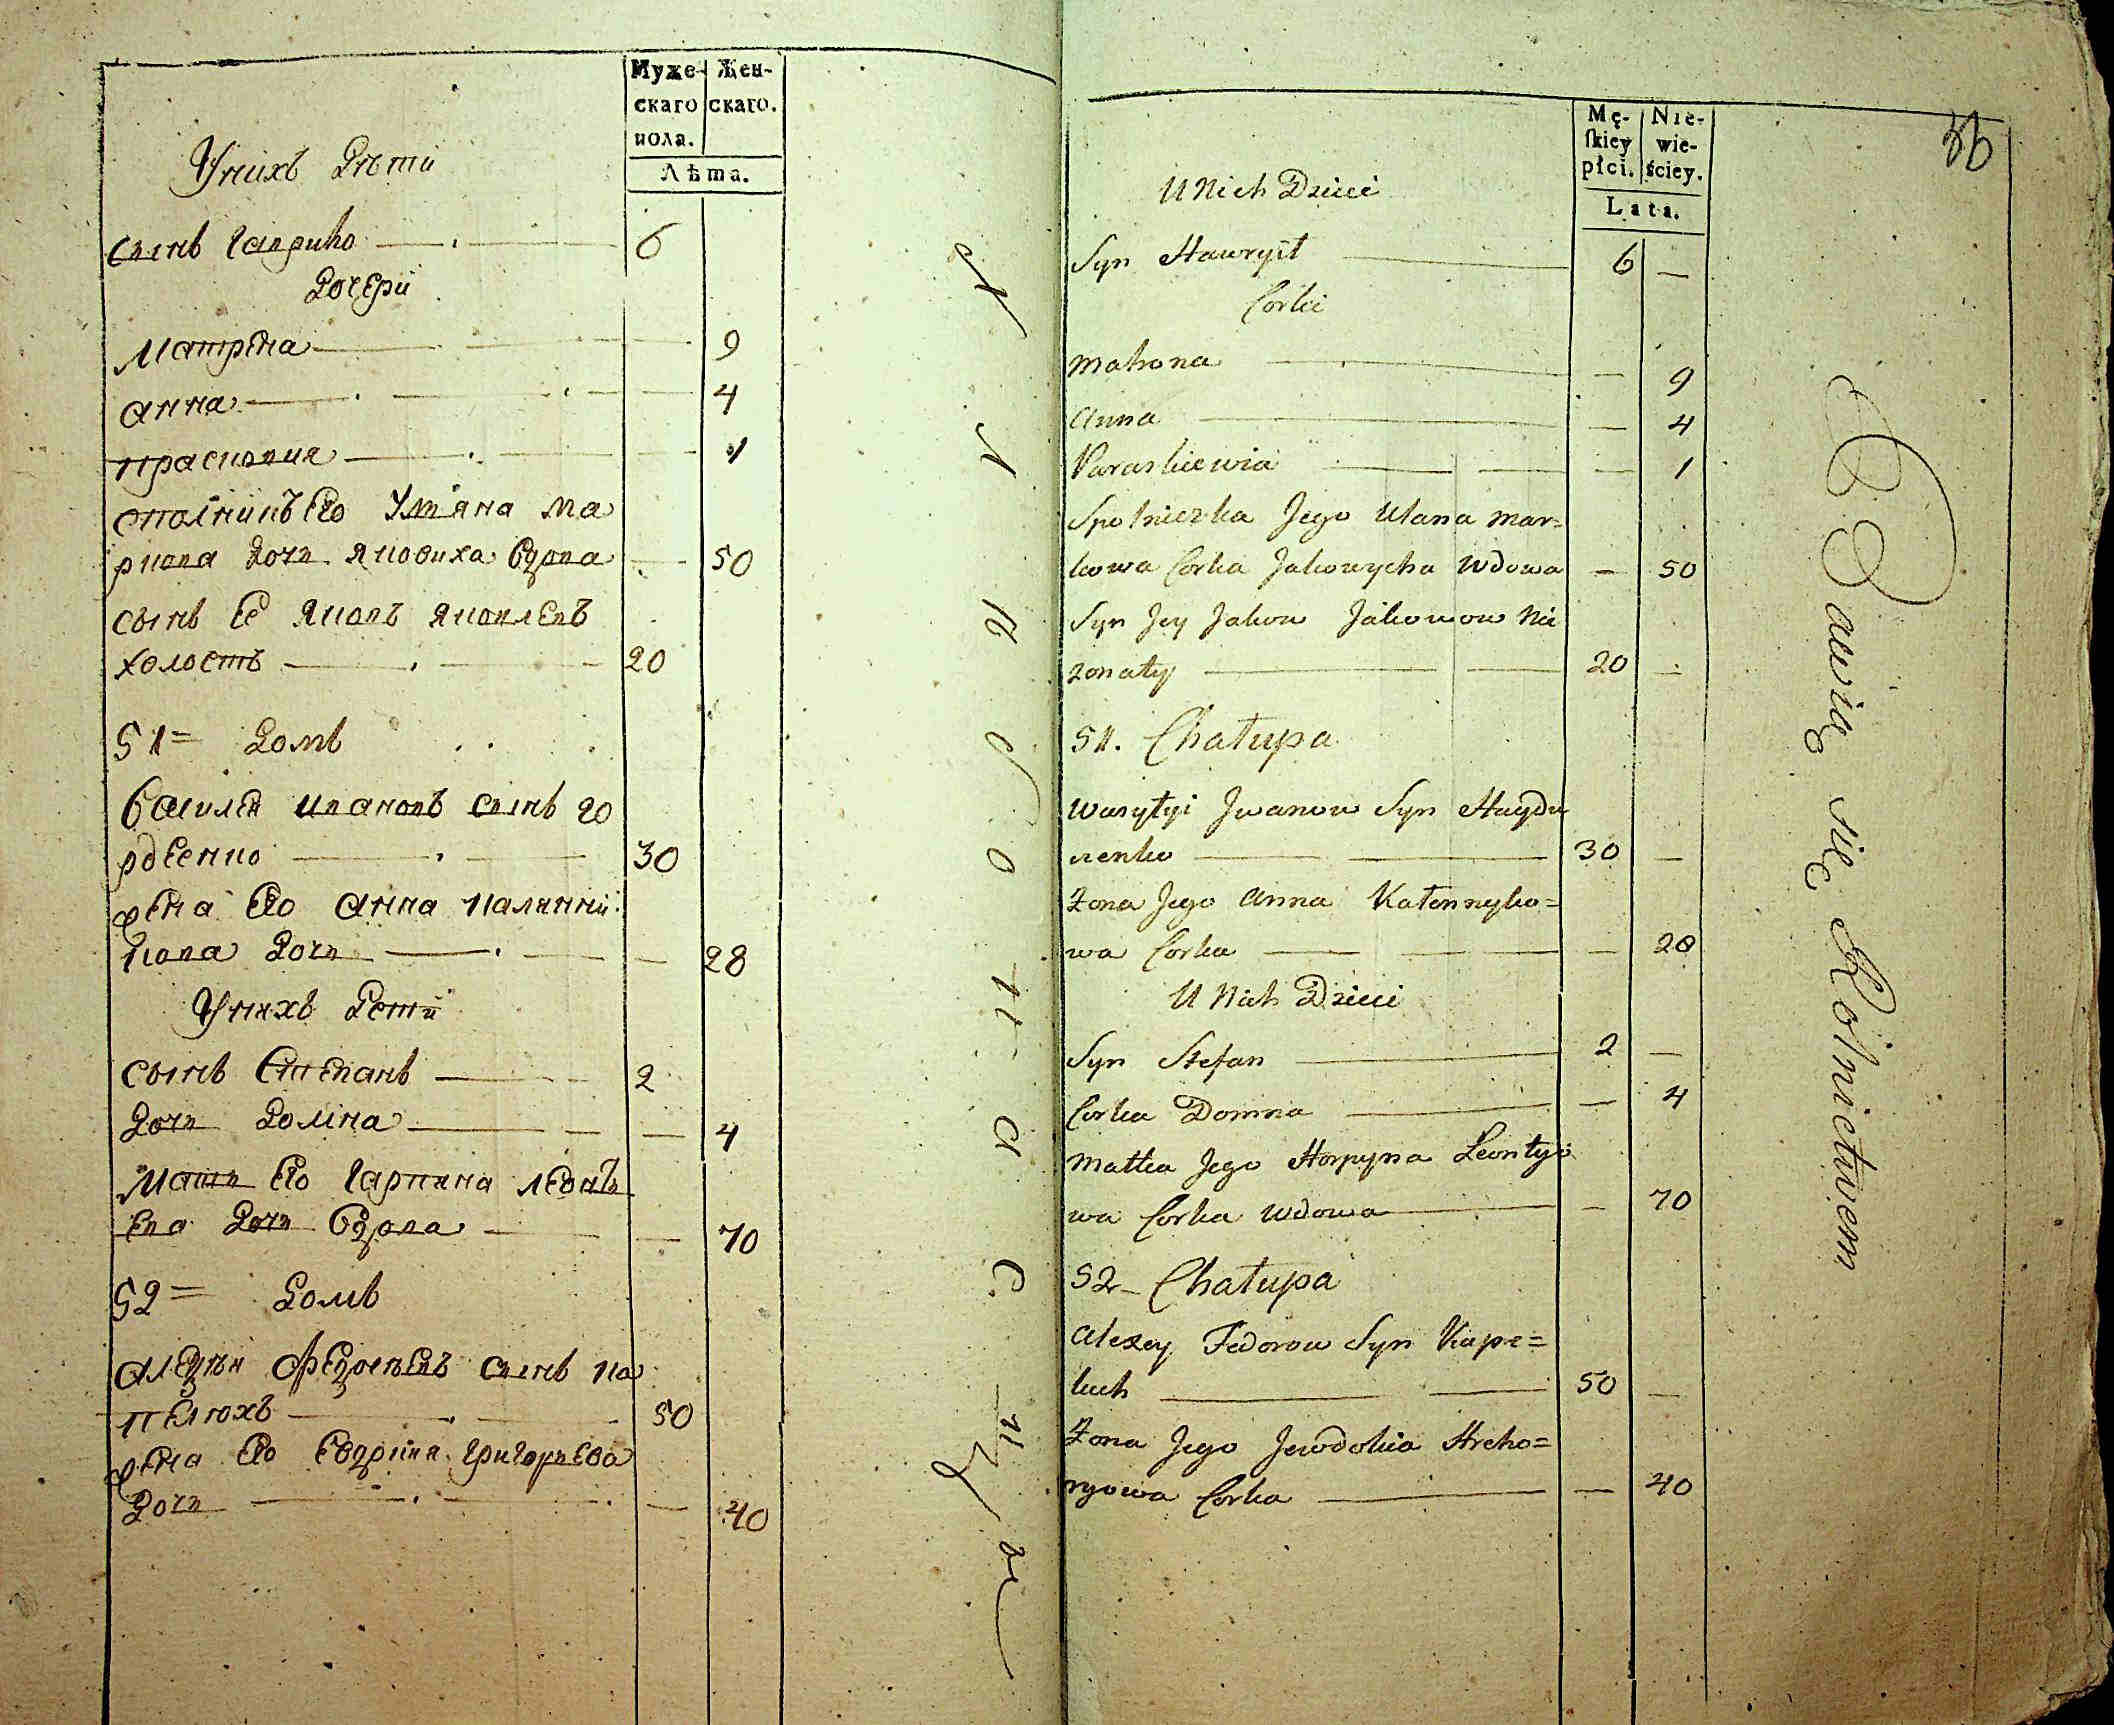 Муже-
скаго
пола.
Жен-
скаго.
Лѣта.
Унихъ Дѣти
Сынъ Гаврило 6
Дочери
Матрена 9
Анна 4
Прасковия 1
Уляна Ма
ркова Дочь Яковиха вдова 50
Сынъ Её Яковъ Яковлевъ
холостъ 20
51= Домъ
Василей Ивановъ Сынъ
30
жена Его Анна
кова Дочь 28
Унихъ Дети
Сынъ Степанъ 2
Дочь Домна 4
Мать Его Гарпина Леонть
ева Дочь вдова 70
52= Домъ
Алексѣй Сынъ Ка
пелюхъ 50
жена Его Григорьева
Дочь 40
Mę-
skiey
płci.
Nie-
wie-
ściey.
Lata.
36
U Nich Dzieci
Syn Hawryił 6 —
Corki
Matrona — 9
Anna — 4
Paraskiewia — 1
Społniczka Jego Ulana Mar=
kowa Corka Jakowycha Wdowa — 50
Syn Jey Jakow Jakowow Nie
żonaty 20 —
51. Chałupa
Wasyłyi Jwanow Syn Hayda
30 —
Żona Jego Anna Kałennyko=
wa Corka — 28
U Nich Dzieci
Syn Stefan 2 —
Corka Domna — 4
Matka Jego Horpyna Leontyi
wa Corka Wdowa — 70
52 Chałupa
Alexey Fedorow Syn Kape=
luch 50 —
Żona Jego Jewdokia Hreho=
ryowa Corka — 40
Bawią się Rolnictwem